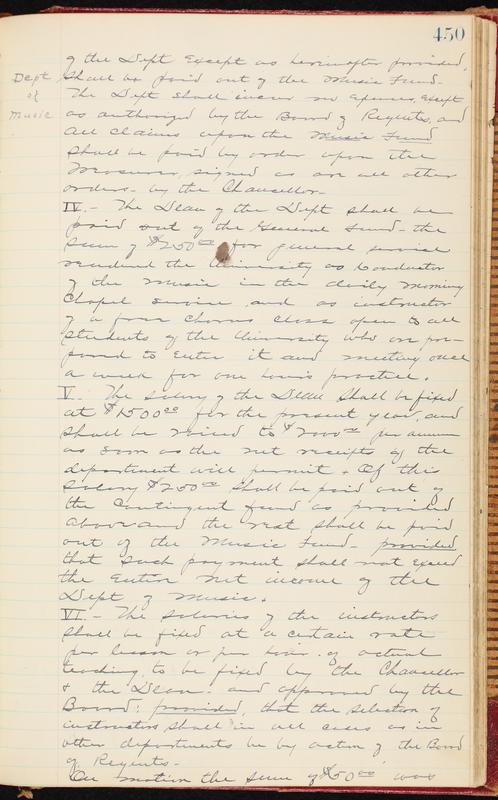 450
Dept
of
Music
of the Dept Except as hereinafter provided,
shall be paid out of the Music Fund.
The Dept shall incur no Expenses, Except
as authorized by the Board of Regents, and
all claims upon the Music Fund
shall be paid by order upon the
Treasurer, signed as are all other
orders - by the Chancellor -
IV. - The Dean of the Dept shall be
paid out of the General Fund - the
sum of $250.00 for general service
rendered the University as Conductor
of the music in the daily morning
Chapel service and as instructor
of a free chorus class open to all
students of the University who are pre-
pared to Enter it and meeting once
a week for one hour's practice.
V. The salary of the Dean shall be fixed
at $1500.00 for the present year, and
shall be raised to $2000.00 per annum
as soon as the net receipts of the
department will permit + Of this
salary $250.00 shall be paid out of
the Contingent fund as provided
above and the rest shall be paid
out of the Music Fund - provided
that such payment shall not exceed
the Entire net income of the
Dept of Music.
VI. - The salaries of the instructors
shall be fixed at a certain rate
per lesson or per hour of actual
teaching to be fixed by the Chancellor
+ the Dean: and approved by the
Board: provided, that the selection of
instructors shall in all cases as in
other departments be by action of the Board
of Regents -
On motion the sum of $50.00 was